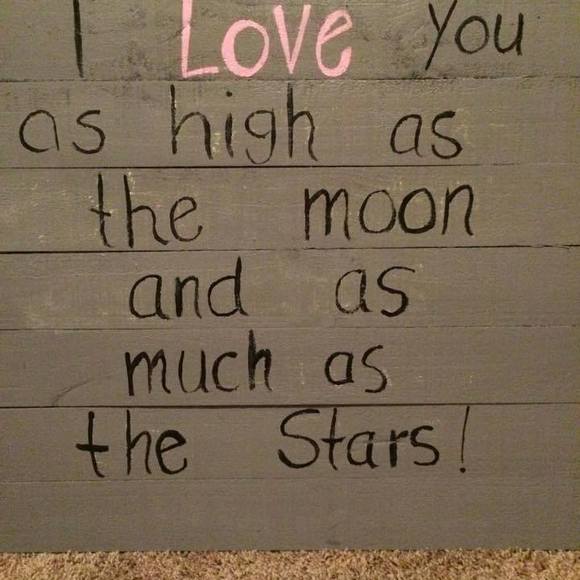 I Love You
as high as
the moon
and as
much as
the Stars!